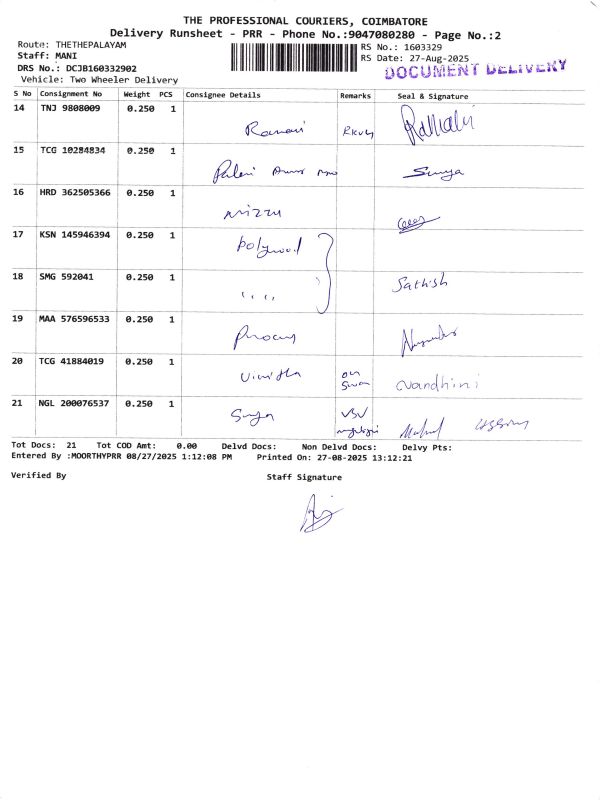 THE PROFESSIONAL COURIERS, COIMBATORE
Delivery Runsheet - PRR - Phone No.:9047080280 - Page No.:2
Route: THETHEPALAYAM
Staff: MANI
DRS No.: DCJB160332902
Vehicle: Two Wheeler Delivery
RS No.: 1603329
RS Date: 27-Aug-2025
DOCUMENT DELIVERY
S No Consignment No Weight PCS Consignee Details Remarks Seal & Signature
14 TNJ 9808009 0.250 1 Ramani
15 TCG 10284834 0.250 1 Palani Surya
16 HRD 362505366 0.250 1
17 KSN 145946394 0.250 1 polywood
18 SMG 592041 0.250 1 ,, ,, Sathish
19 MAA 576596533 0.250 1
20 TCG 41884019 0.250 1 Vinitha Nandhini
21 NGL 200076537 0.250 1 Surya VSV
Tot Docs: 21 Tot COD Amt: 0.00 Delvd Docs: Non Delvd Docs: Delvy Pts:
Entered By :MOORTHYPRR 08/27/2025 1:12:08 PM Printed On: 27-08-2025 13:12:21
Verified By Staff Signature